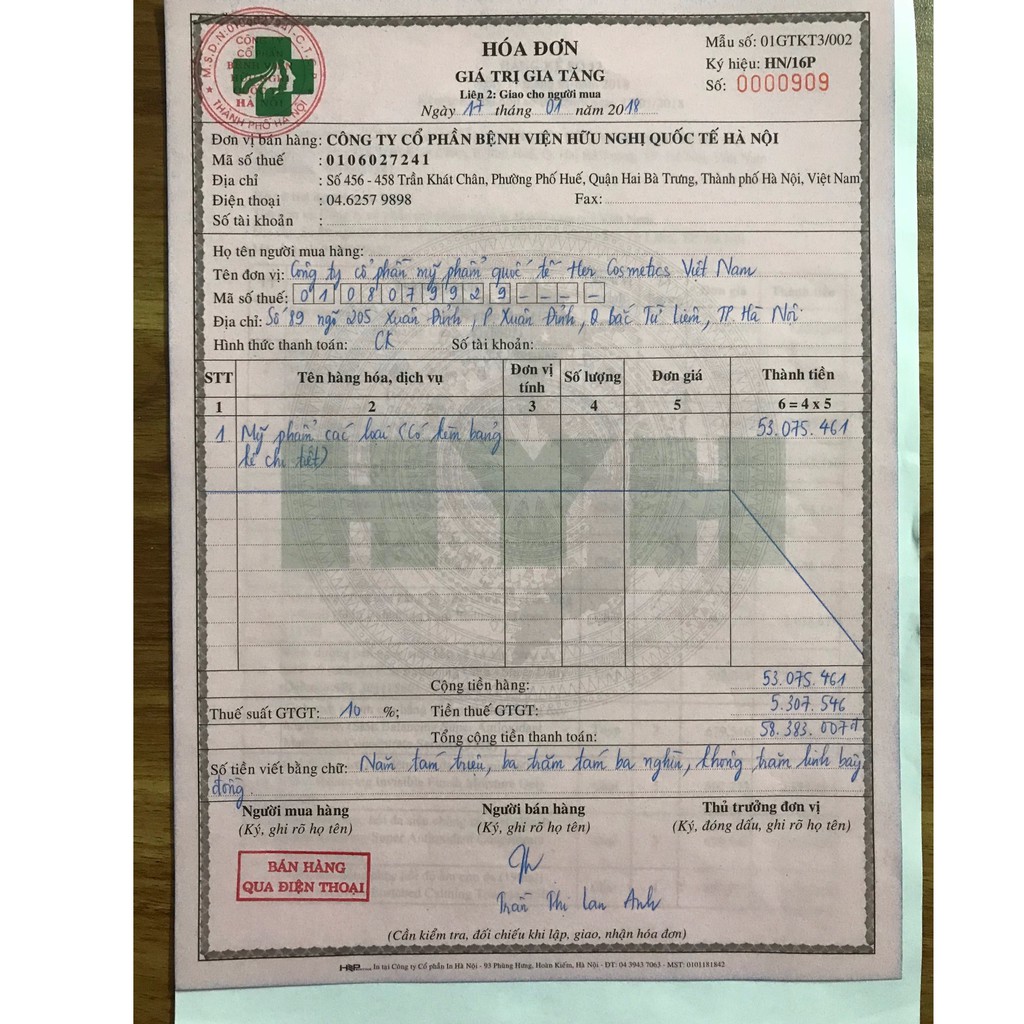 HÓA ĐƠN
GIÁ TRỊ GIA TĂNG
Liên 2: Giao cho người mua
Ngày 17 tháng 01 năm 2018
Mẫu số: 01GTKT3/002
Ký hiệu: HN/16P
Số: 0000909
HÀ NỘI
THÀNH PHỐ HÀ NỘI
Đơn vị bán hàng: CÔNG TY CỔ PHẦN BỆNH VIỆN HỮU NGHỊ QUỐC TẾ HÀ NỘI
Mã số thuế : 0106027241
Địa chỉ : Số 456 - 458 Trần Khát Chân, Phường Phố Huế, Quận Hai Bà Trưng, Thành phố Hà Nội, Việt Nam
Điện thoại : 04.6257 9898 Fax:
Số tài khoản :
Họ tên người mua hàng:
Tên đơn vị: Công ty cổ phần mỹ phẩm quốc tế Her Cosmetics Việt Nam
Mã số thuế: 0108079929
Địa chỉ: Số 89 ngõ 205 Xuân Đỉnh, P Xuân Đỉnh, Q Bắc Từ Liêm, TP. Hà Nội
Hình thức thanh toán: CK Số tài khoản:
STT Tên hàng hóa, dịch vụ Đơn vị tính Số lượng Đơn giá Thành tiền
1 2 3 4 5 6 = 4 x 5
1 Mỹ phẩm các loại (Có kèm bảng 53.075.461
kê chi tiết)
HYH
Cộng tiền hàng: 53.075.461
Thuế suất GTGT: 10 %; Tiền thuế GTGT: 5.307.546
Tổng cộng tiền thanh toán: 58.383.007đ
Số tiền viết bằng chữ: Năm tám triệu, ba trăm tám ba nghìn, không trăm linh bảy
đồng
Người mua hàng Người bán hàng Thủ trưởng đơn vị
(Ký, ghi rõ họ tên) (Ký, ghi rõ họ tên) (Ký, đóng dấu, ghi rõ họ tên)
BÁN HÀNG
QUA ĐIỆN THOẠI
Trần Thị Lan Anh
(Cần kiểm tra, đối chiếu khi lập, giao, nhận hóa đơn)
In tại Công ty Cổ phần In Hà Nội - 93 Phùng Hưng, Hoàn Kiếm, Hà Nội - ĐT: 04 3943 7063 - MST: 0101181842